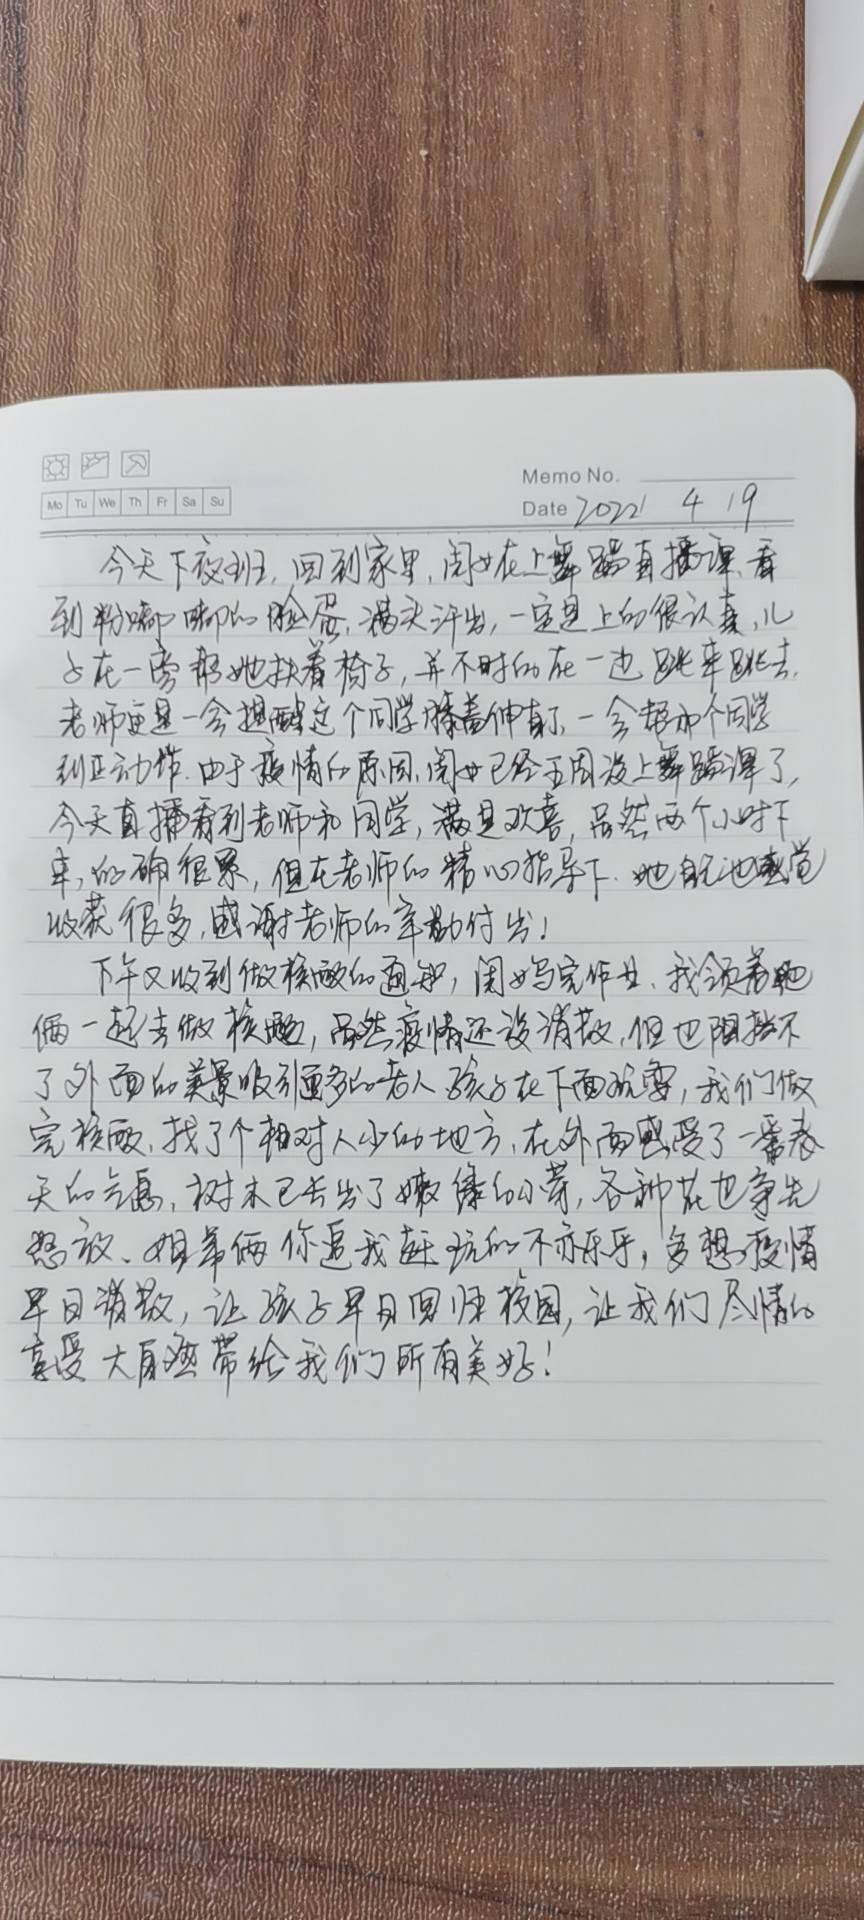 Memo No.
Mo Tu We Th Fr Sa Su
Date 2022 4 19
今天下夜班，回到家里，闺女在上舞蹈直播课，看
到粉嘟嘟的脸蛋，满头汗出，一定是上的很认真，儿
子在一旁帮她扶着椅子，并不时的在一边跳来跳去，
老师更是一会提醒这个同学膝盖伸直了，一会帮那个同学
纠正动作．由于疫情的原因，闺女已经五周没上舞蹈课了，
今天直播看到老师和同学，满是欢喜，虽然两个小时下
来，的确很累，但在老师的精心指导下．她自己也感觉
收获很多，感谢老师的辛勤付出！
下午又收到做核酸的通知，闺女写完作业、我领着他
俩一起去做核酸，虽然疫情还没消散，但也阻挡不
了外面的美景吸引更多的老人孩子在下面玩耍，我们做
完核酸，找了个相对人少的地方，在外面感受了一番春
天的气息，树木已长出了嫩绿的小芽，各种花也争先
怒放、姐弟俩你追我赶玩的不亦乐乎，多想疫情
早日消散，让孩子早日回归校园，让我们尽情的
享受大自然带给我们所有美好！